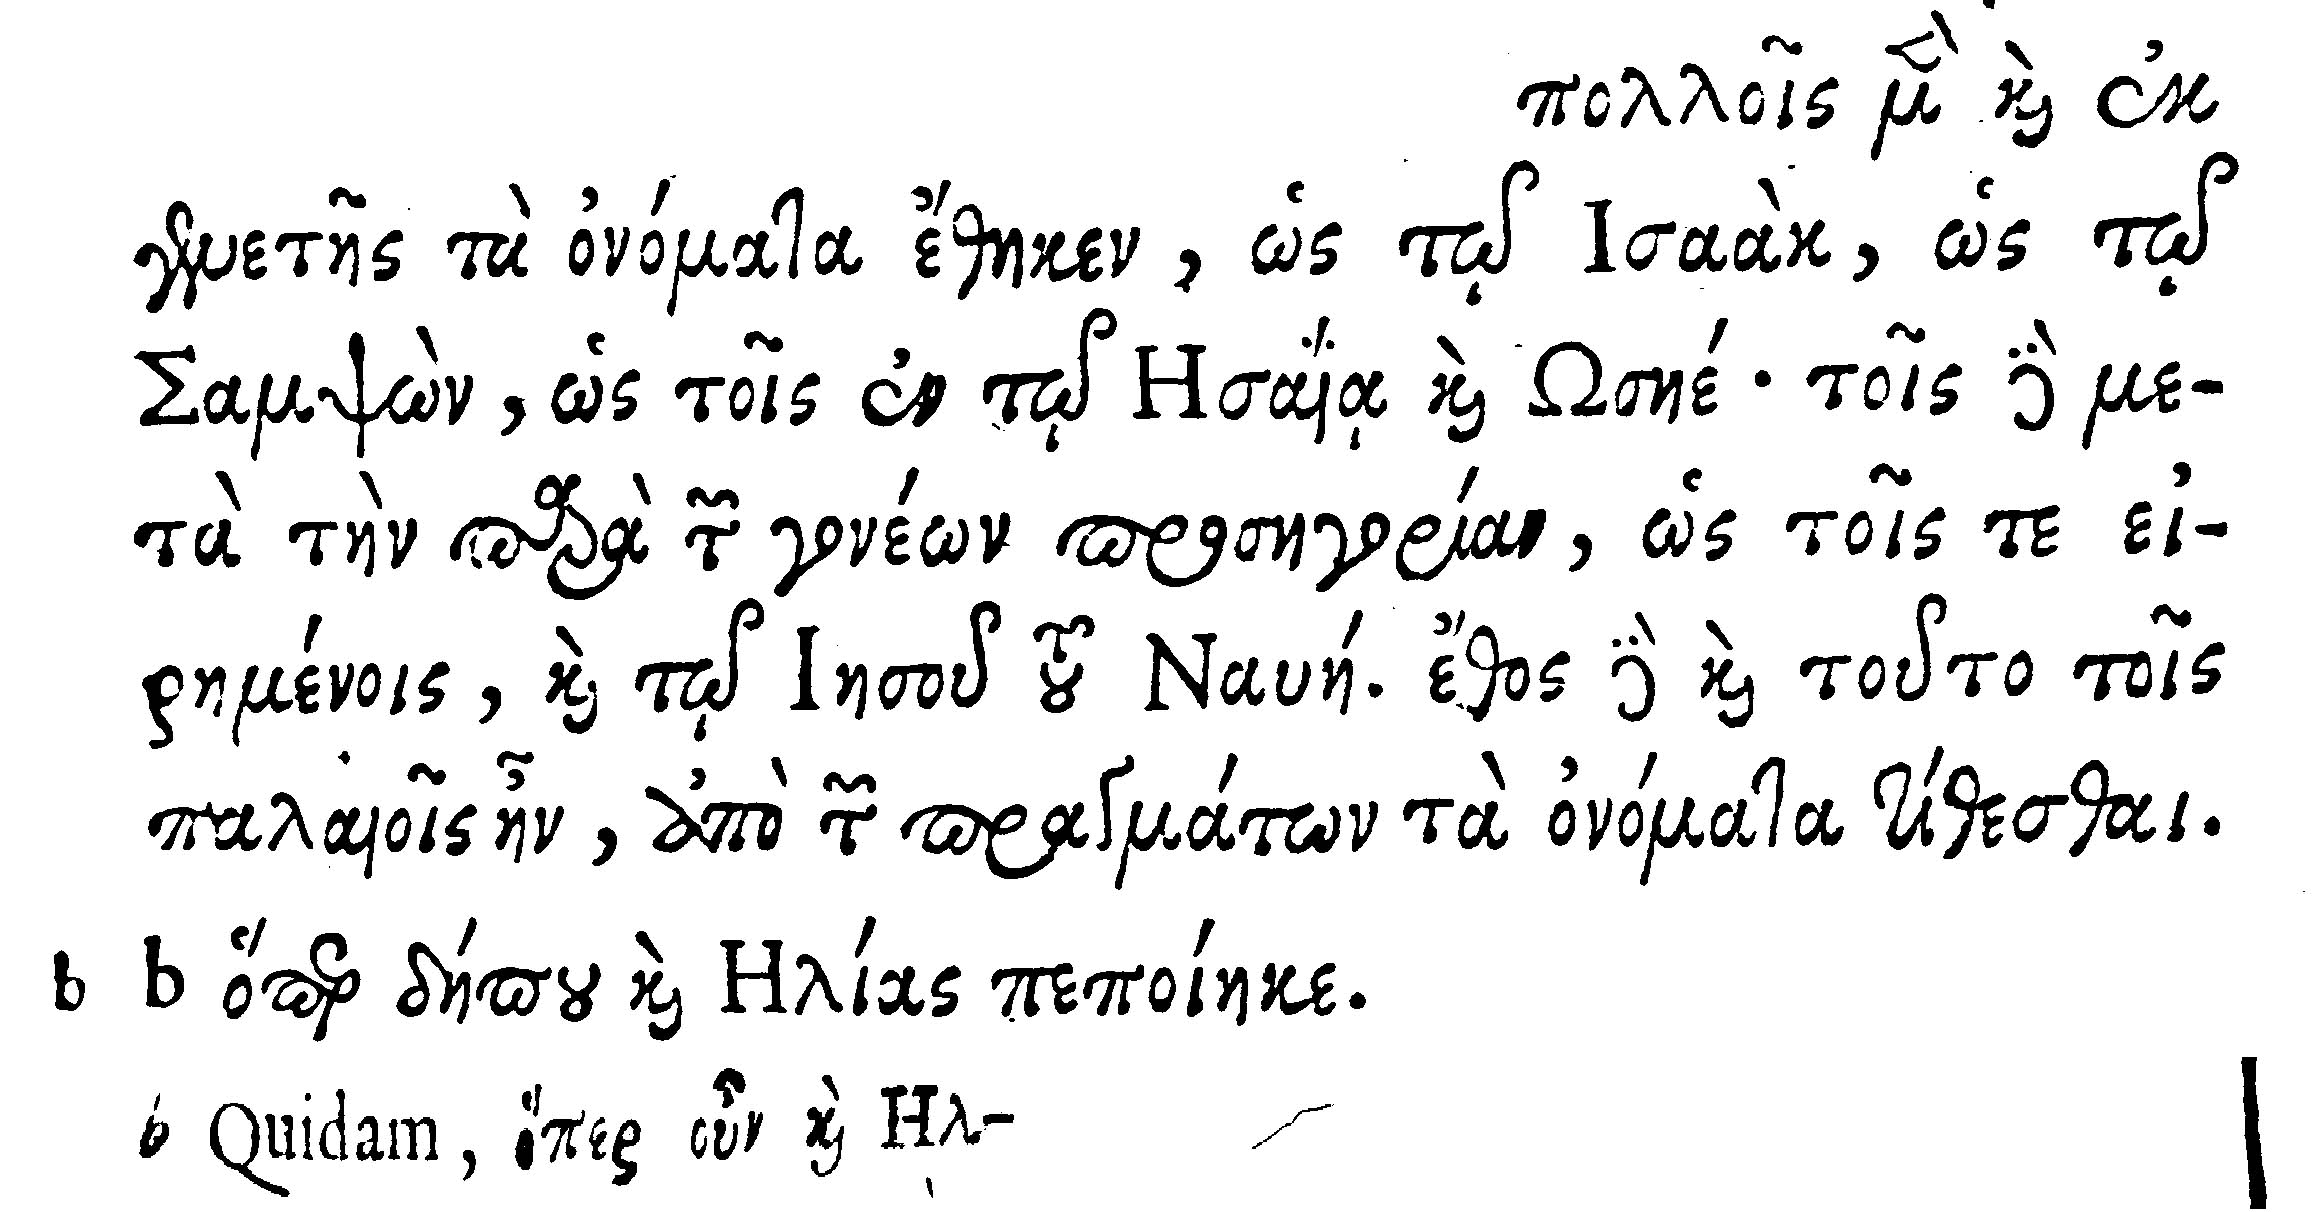 πολλοῖς μὲν καὶ ἐκ
γενετῆς τὰ ὀνόματα ἔθηκεν, ὡς τῷ Ισαὰκ, ὡς τῷ
Σαμψὼν, ὡς τοῖς ἐν τῷ Ησαΐᾳ καὶ Ωσηέ· τοῖς δὲ με-
τὰ τὴν παρὰ τῶν γονέων προσηγορίαν, ὡς τοῖς τε εἰ-
ρημένοις, καὶ τῷ Ιησοῦ τοῦ Ναυή. ἔθος δὲ καὶ τοῦτο τοῖς
παλαιοῖς ἦν, ἀπὸ τῶν πραγμάτων τὰ ὀνόματα τίθεσθαι.
b b ὅπερ δήπου καὶ Ηλίας πεποίηκε.
b Quidam, ὅπερ οὖν καὶ Ηλ-